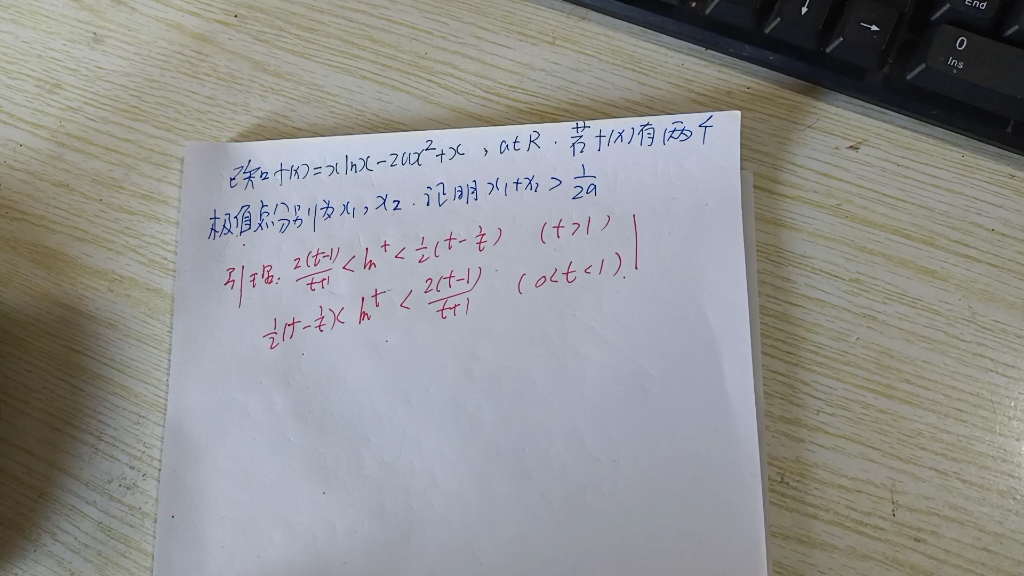 End
↓
→
0
Ins
已知f(x)=xlnx-2ax²+x，a∈R．若f(x)有两个
极值点分别为x₁，x₂．证明x₁+x₂>1/(2a)
引理．2(t-1)/(t+1)<ln t<1/2(t-1/t) (t>1)
1/2(t-1/t)<ln t<2(t-1)/(t+1) (0<t<1)．